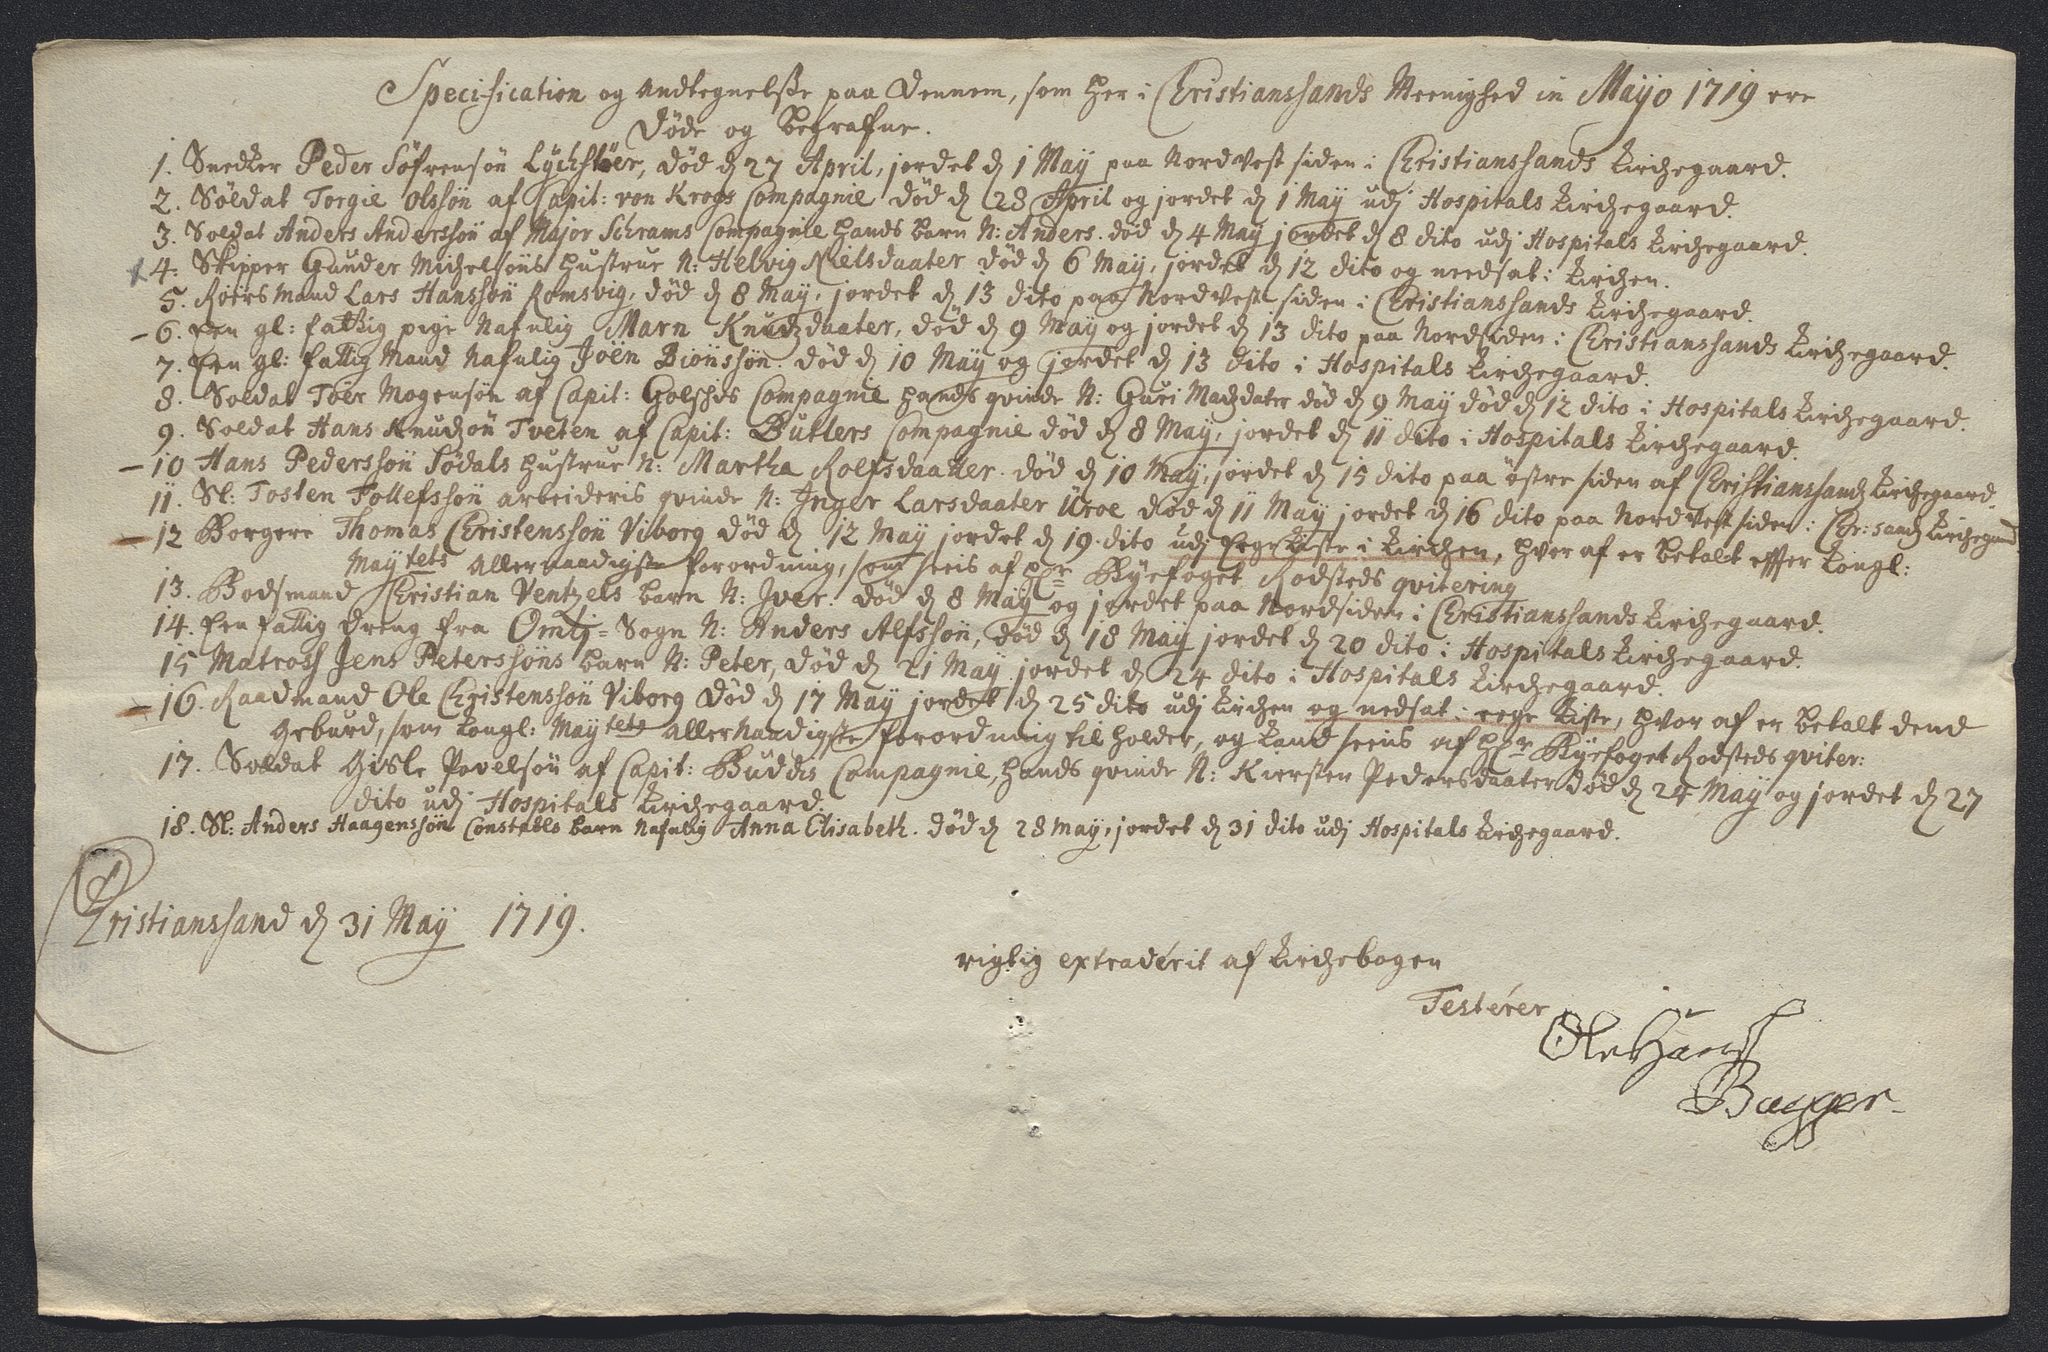 Specification og Andtegnelsse paa Dennem, som her i Christianssands Meenighed in Majo 1719 ere
Døde og Begrafne.
1. Snedker Peder Söfrensön Lychstöer, död d 27 April, jordet d 1 May paa Nordvest siden i Christianssands Kirchegaard.
2. Soldat Torgie Olssön af Capit: von Krogs Compagnie död d 28 April og jordet d 1 May udj Hospitals Kirchegaard.
3. Soldat Anders Anderssön af Major Schrams Compagnie hands barn N: Anders. död d 4 May jordet d 8 dito udj Hospitals Kirchegaard.
4: Skipper Gunder Michelsöns hustrue N: Helvig Nielsdaater död d 6 May, jordet d 12 dito og needsat i Kirchen.
5. Roersmand Lars Hanssön Romsvig, död d 8 May, jordet d 13 dito paa Nordvest siden i Christianssands Kirchegaard.
- 6. Een gl: fattig pige Nafnlig Marn Knudzdaater, död d 9 May og jordet d 13 dito paa Nordsiden i Christianssands Kirchegaard.
7. Een gl: fattig Mand Nafnlig Joen Biönssön. död d 10 May og jordet d 13 dito i Hospitals Kirchegaard.
8. Soldat Toer Mogensön af Capit: Golschds Compagnie hands qvinde N: Guri Madzdater död d 9 May död d 12 dito i Hospitals Kirchegaard.
9. Soldat Hans Knudzön Tveten af Capit: Butlers Compagnie död d 8 May, jordet d 11 dito i Hospitals Kirchegaard.
- 10 Hans Pederssön Södals hustrue N: Martha Rolfsdaatter. död d 10 May, jordet d 15 dito paa östre siden af Christianssandz Kirchegaard.
11. Sl: Tosten Tollefssön arbeideris qvinde N: Inger Larsdaater Uroe död d 11 May jordet d 16 dito paa Nordvest siden i Chr:sandz Kirchegaard
- 12 Borgere Thomas Christenssön Viborg död d 12 May jordet d 19. dito udj Eege Kiste i Kirchen, hvor af er betalt effter Kongl:
Maytets Allernaadigste forordning, som sees af hr Byefoget Rodsteds qvitering
13. Bodsmand Christian Ventzels barn N: Iver. död d 8 May og jordet paa Nordsiden i Christianssands Kirchegaard.
14. Een fattig dreng fra Omlj=Sogn N: Anders Alfssön, död d 18 May jordet d 20 dito i Hospitals Kirchegaard.
15 Matross Jens Peterssöns barn N: Peter, död d 21 May jordet d 24 dito i Hospitals Kirchegaard.
- 16. Raadmand Ole Christenssön Viborg död d 17 May jordet d 25 dito udj Kirchen og nedsat i eege Kiste, hvor af er betalt dend
Geburd, som Kongl: Maytets Allernaadigste forordning til holder, og Kand seeis af hr Byefoget Rodsteds qviter:
17. Soldat Gisle Povelsön af Capit: Buddis Compagnie, hands qvinde N: Kiersten Pedersdaater död d 24 May og jordet d 27
dito udj Hospitals Kirchegaard.
18. Sl: Anders Haagenssön Constabls barn Nafnlig Anna Elisabeth. död d 28 May, jordet d 31 dito udj Hospitals Kirchegaard.
Christianssand d 31 May 1719.
rigtig extraderit af Kirchebogen
Testérer
Ole Hanss
Bagger.